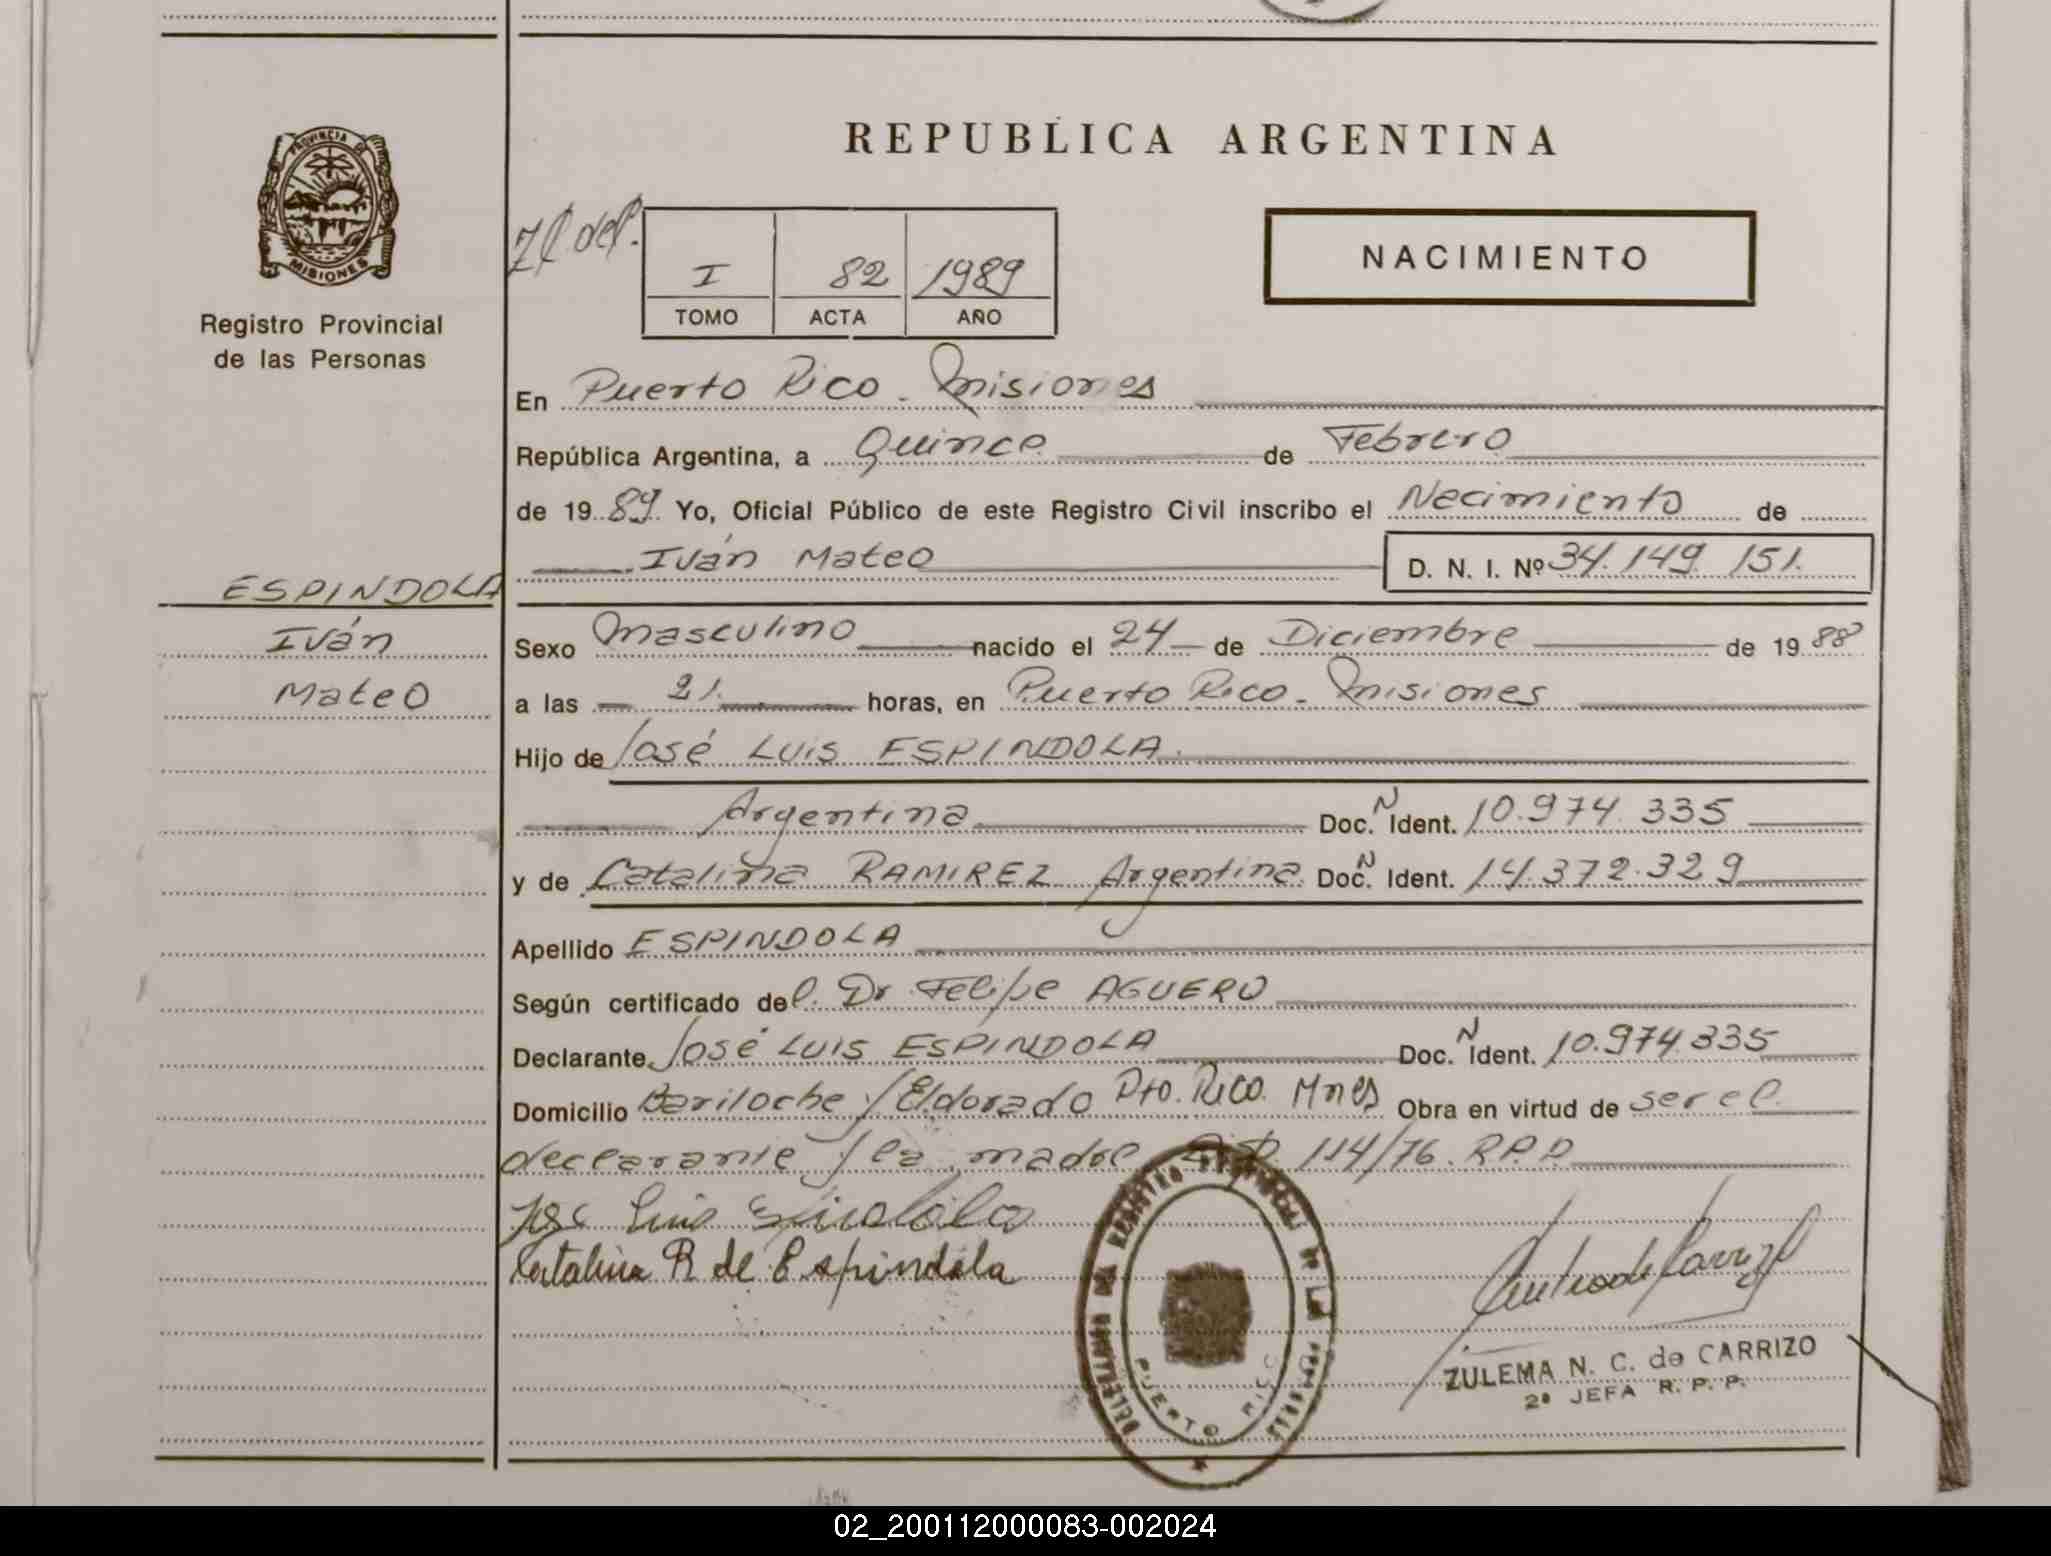 REPUBLICA ARGENTINA
PROVINCIA DE
MISIONES
Registro Provincial
de las Personas
I 82 1989
TOMO ACTA AÑO
NACIMIENTO
En Puerto Rico - Misiones
República Argentina, a Quince de Febrero
de 1989 Yo, Oficial Público de este Registro Civil inscribo el Nacimiento de
Iván Mateo D. N. I. Nº 34.149.151.
ESPINDOLA
Iván
Mateo
Sexo Masculino nacido el 24 de Diciembre de 1988
a las 21. horas, en Puerto Rico - Misiones
Hijo de José Luis ESPINDOLA.
Argentina Doc. N Ident. 10.974.335
y de Catalina RAMIREZ Argentina. Doc. N Ident. 14.372.329
Apellido ESPINDOLA
Según certificado del. Dr. Felipe AGUERO
Declarante José LUIS ESPINDOLA Doc. N Ident. 10.974.335
Domicilio Bariloche y/ Eldorado Pto. Rico. Mnes Obra en virtud de ser el
declarante y la madre 114/76. R.P.P.
Jose Luis Espindola
Catalina R de Espindola
DEL REGISTRO PROVINCIAL DE LAS PERSONAS
PUERTO RICO
ZULEMA N. C. de CARRIZO
2ª JEFA R. P. P.
02_200112000083-002024